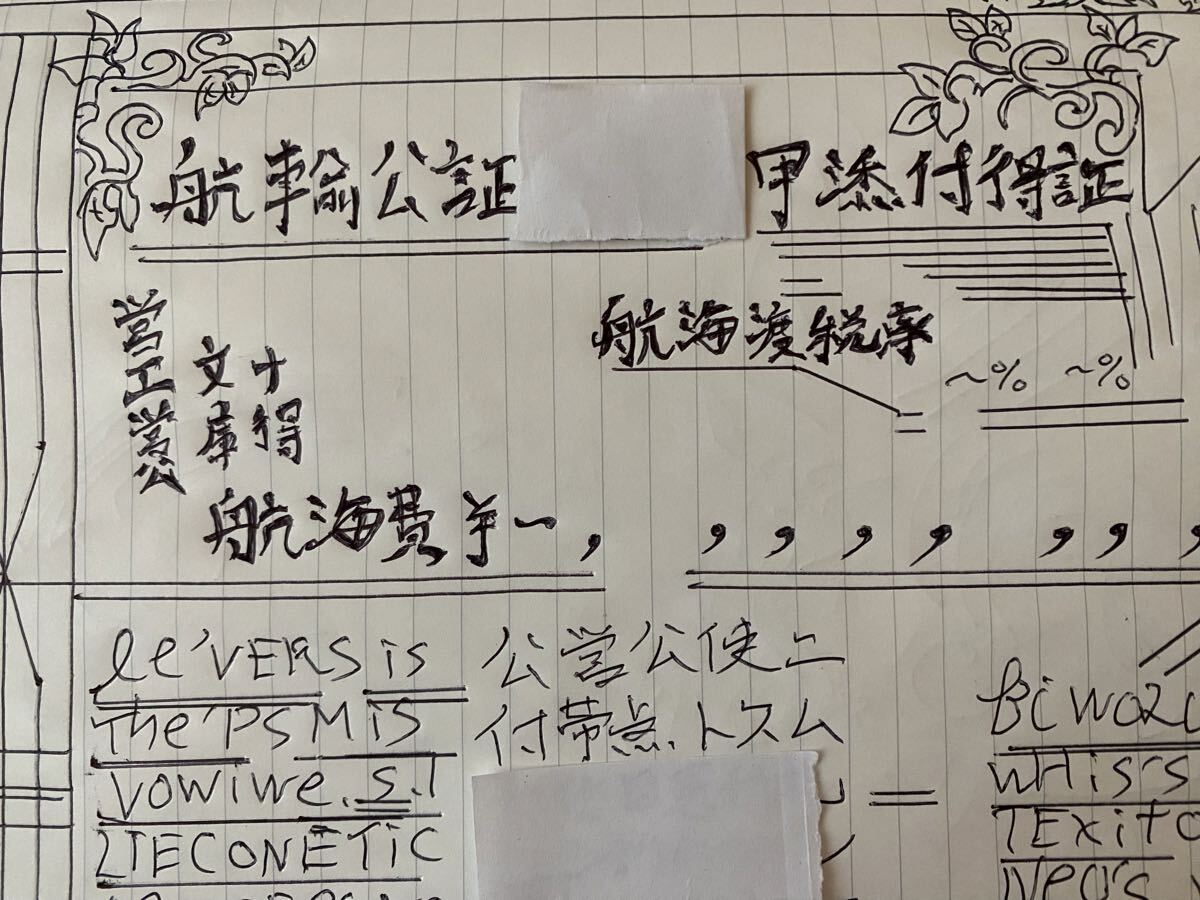 航輸公証 甲添付得証
航海渡税率
~% ~%
公営工営
文庫
十得
航海費 ~, , , , , , ,
le'VERS is 公営公使ニ
The'PSM iS 付帯点.トスム
VOWiWe.S.I
LIECONETiC
WHis's
TExiTO